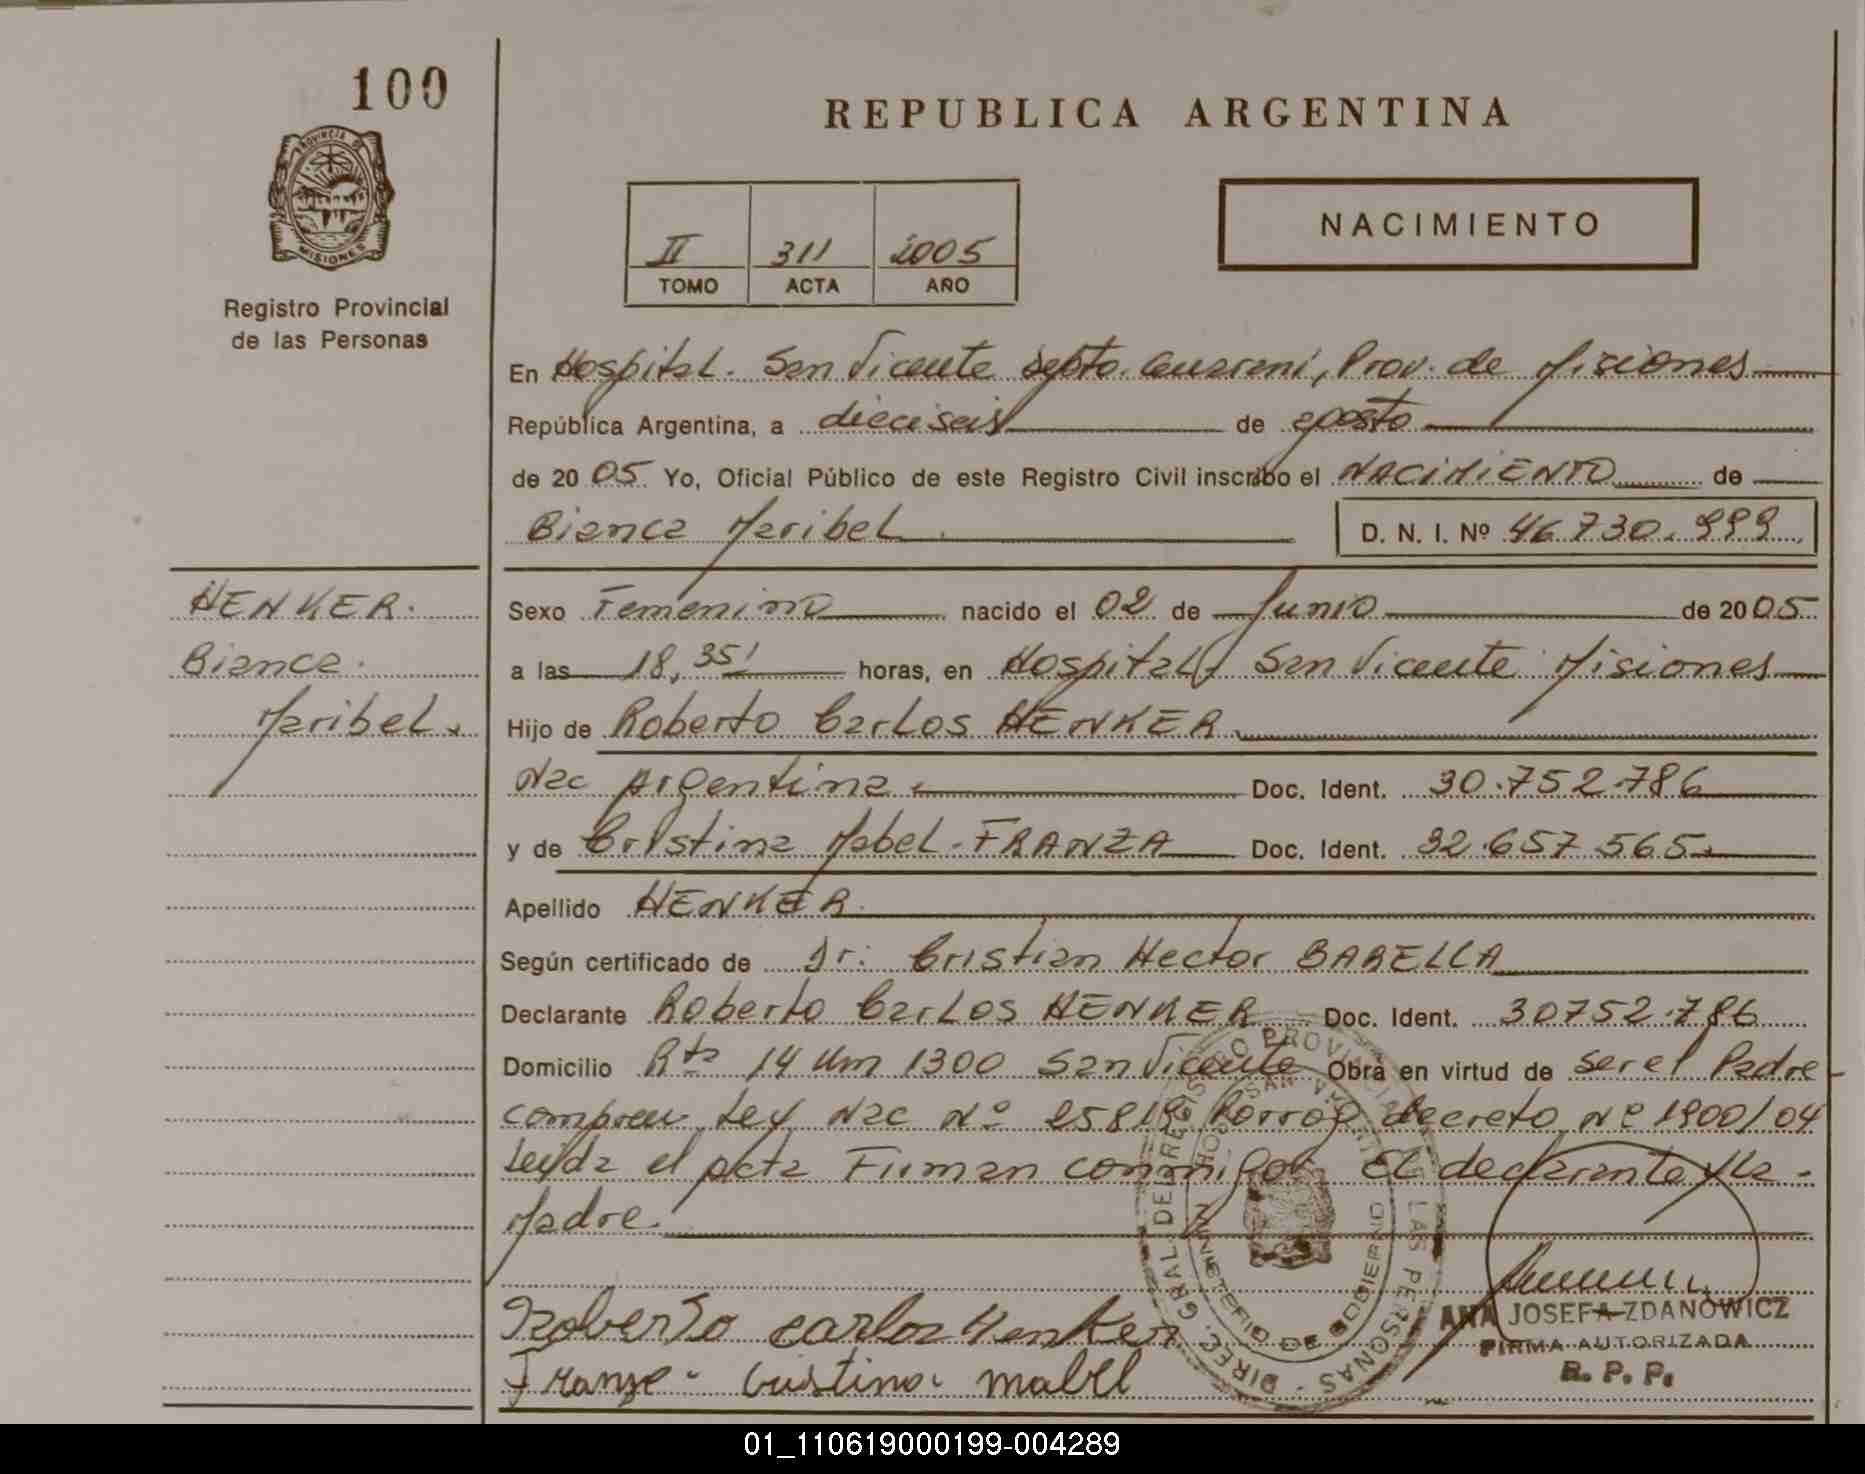 100
PROVINCIA DE
MISIONES
Registro Provincial
de las Personas
REPUBLICA ARGENTINA
II 311 2005
TOMO ACTA AÑO
NACIMIENTO
En Hospital. San Vicente Depto. Guarani, Prov. de Misiones
República Argentina, a dieciseis de agosto
de 2005 Yo, Oficial Público de este Registro Civil inscribo el NACIMIENTO de
Bianca Maribel D. N. I. Nº 46.730.999
HENKER.
Bianca
Maribel.
Sexo Femenino nacido el 02 de Junio de 2005
a las 18,35' horas, en Hospital, San Vicente Misiones
Hijo de Roberto Carlos HENKER
Nac Argentina Doc. Ident. 30.752.786
y de Cristina Mabel FRANZA Doc. Ident. 32.657.565
Apellido HENKER
Según certificado de Dr: Cristian Hector BARELLA
Declarante Roberto Carlos HENKER Doc. Ident. 30752.786
Domicilio Rta 14 Km 1300 San Vicente Obra en virtud de ser el Padre
Ley Nac Nº 25819 decreto Nº 1900/04
Leida el acta Firman conmigo El declarante y la
Madre.
Roberto carlos Henker
Franza cristina mabel
DIREC. GRAL. DEL REGISTRO PROVINCIAL DE LAS PERSONAS
MINISTERIO DE GOBIERNO
ANA JOSEFA ZDANOWICZ
FIRMA AUTORIZADA
R. P. P.
01_110619000199-004289